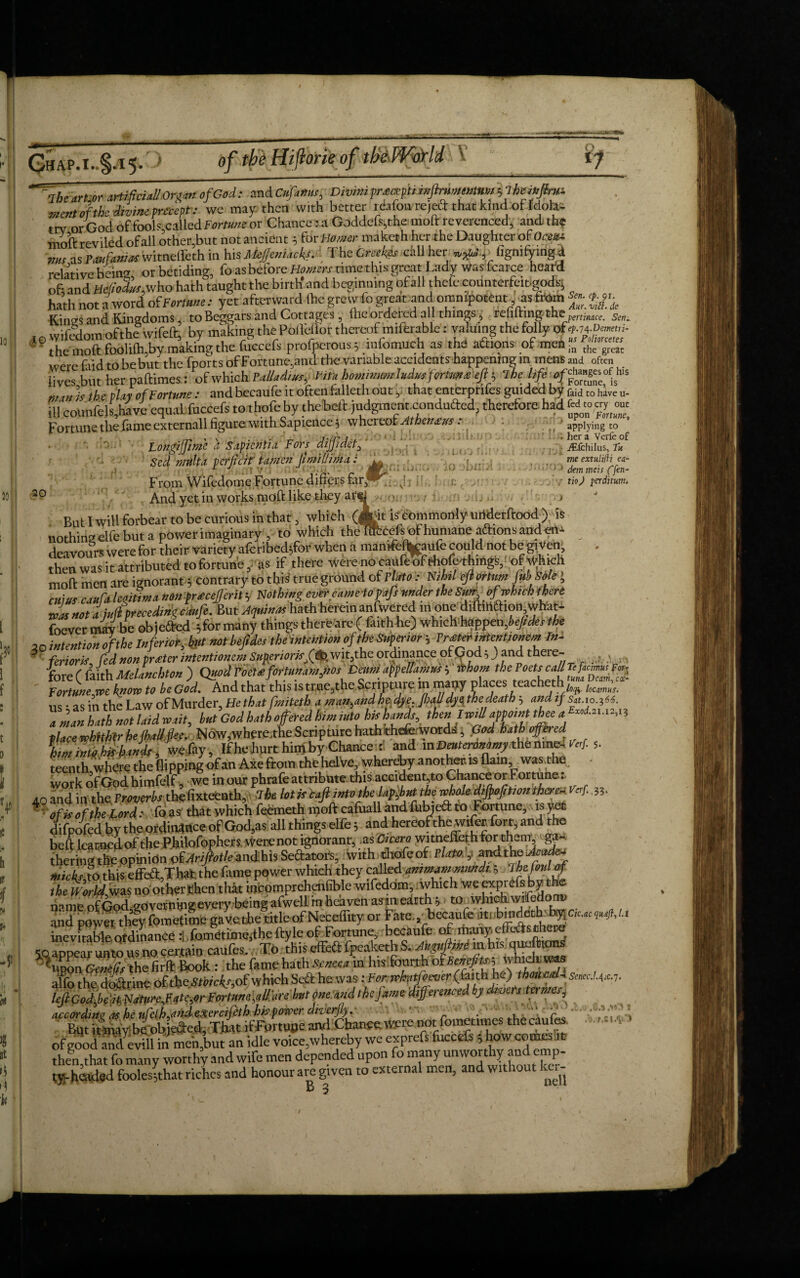 CHAP.I. §.15. of the Historie of the World 17
The art, or artificiall Organ of God: and Cusanus, Divini præcepti instrumentum; The instru-
ment of the divine precept: we may then with better reason reject that kind of Idola-
try, or God of fools, called Fortune or Chance: a Goddess, the most reverenced, and the
most reviled of all other, but not ancient; for Homer maketh her the Daughter of Ocea-
nus, as Pausanias witnesseth in his Messeniacks. The Greekes call her, signifying a
relative being, or betiding, so as before Homers time this great Lady was scarce heard
of; and Hesiodus, who hath taught the birth and beginning of all these counterfeit gods,
hath not a word of Fortune: yet afterward she grew so great and omnipotent, as from
Kings and Kingdoms, to Beggars and Cottages, she ordered all things, resisting the
wisedom of the wisest, by making the Possessor thereof miserable: valuing the folly of
the most foolish, by making the success prosperous; insomuch as the actions of men
were said to be but the sports of Fortune, and the variable accidents happening in mens
lives, but her pastimes: of which Palladius, Vita hominum ludus fortunæ est; The life of
man is the play of Fortune: and because it often falleth out, that enterprises guided by
ill counsels, have equal success to those by the best judgment conducted, therefore had
Fortune the same externall figure with Sapience; whereof Athenæus:
Longissime a Sapientia Fors dissidet,
Sed multa perficit tamen simillima:
From Wisedome Fortune differs far,
And yet in works most like they are.
But I will forbear to be curious in that, which (as it is commonly understood) is
nothing else but a power imaginary, to which the success of humane actions and en-
deavours were for their variety ascribed; for when a manifest cause could not be given,
then was it attributed to fortune, as if there were no cause of those things, of which
most men are ignorant; contrary to this true ground of Plato: Nihil est ortum sub Sole,
cujus causa legitima non præcesserit; Nothing ever came to pass under the Sun, of which there
was not a just preceding cause. But Aquinas hath herein answered in one distinction, what-
soever may be objected; for many things there are (saith he) which happen, besides the
intention of the Inferior, but not besides the intention of the Superior; Præter intentionem In-
ferioris, sed non præter intentionem Superioris, (to wit, the ordinance of God;) and there-
fore (saith Melanchton) Quod Poetæ fortunam, nos Deum appellamus; whom the Poets call
Fortune, we know to be God. And that this is true, the Scripture in many places teacheth
us; as in the Law of Murder, He that smiteth a man, and he dye, shall dye the death; and if
a man hath not laid wait, but God hath offered him into his hands, then I will appoint thee a
place whither he shall flee. Now, where the Scripture hath these words, God hath offered
him into his hands, we say, If he hurt him by Chance: and in Deuteronomy the nine-
teenth, where the slipping of an Axe from the helve, whereby another is slain, was the
work of God himself, we in our phrase attribute this accident, to Chance or Fortune:
and in the Proverbs the sixteenth, The lot is cast into the lap, but the whole disposition thereof
is of the Lord: so as that which seemeth most casuall and subject to Fortune, is yet
disposed by the ordinance of God, as all things else; and hereof the wiser sort, and the
best learned of the Philosophers were not ignorant, as Cicero witnesseth for them, ga-
thering the opinion of Aristotle and his Sectators, with those of Plato, and the Acade-
micks, to this effect, That the same power which they called animam mundi; The soul of
the World, was no other then that incomprehensible wisedom, which we express by the
name of God, governing every being aswell in heaven as in earth; to which wisedom
and power they sometime gave the title of Necessity or Fate, because it bindeth by
inevitable ordinance: sometime, the style of Fortune, because of many effects there
appear unto us no certain causes. To this effect speaketh S. Augustine in his questions
upon Genesis the first Book: the same hath Seneca in his fourth of Benefits; which was
also the doctrine of the Stoicks, of which Sect he was: For whatsoever (saith he) thou cal-
lest God, be it Nature, Fate, or Fortune, all are but one and the same differenced by divers termes,
according as he useth, and exerciseth his power diversly.
But it may be objected, That if Fortune and Chance were not sometimes the causes
of good and evill in men, but an idle voice, whereby we express success; how comes it
then, that so many worthy and wise men depended upon so many unworthy and emp-
ty-headed fooles; that riches and honour are given to external men, and without ker-
B 3 nell